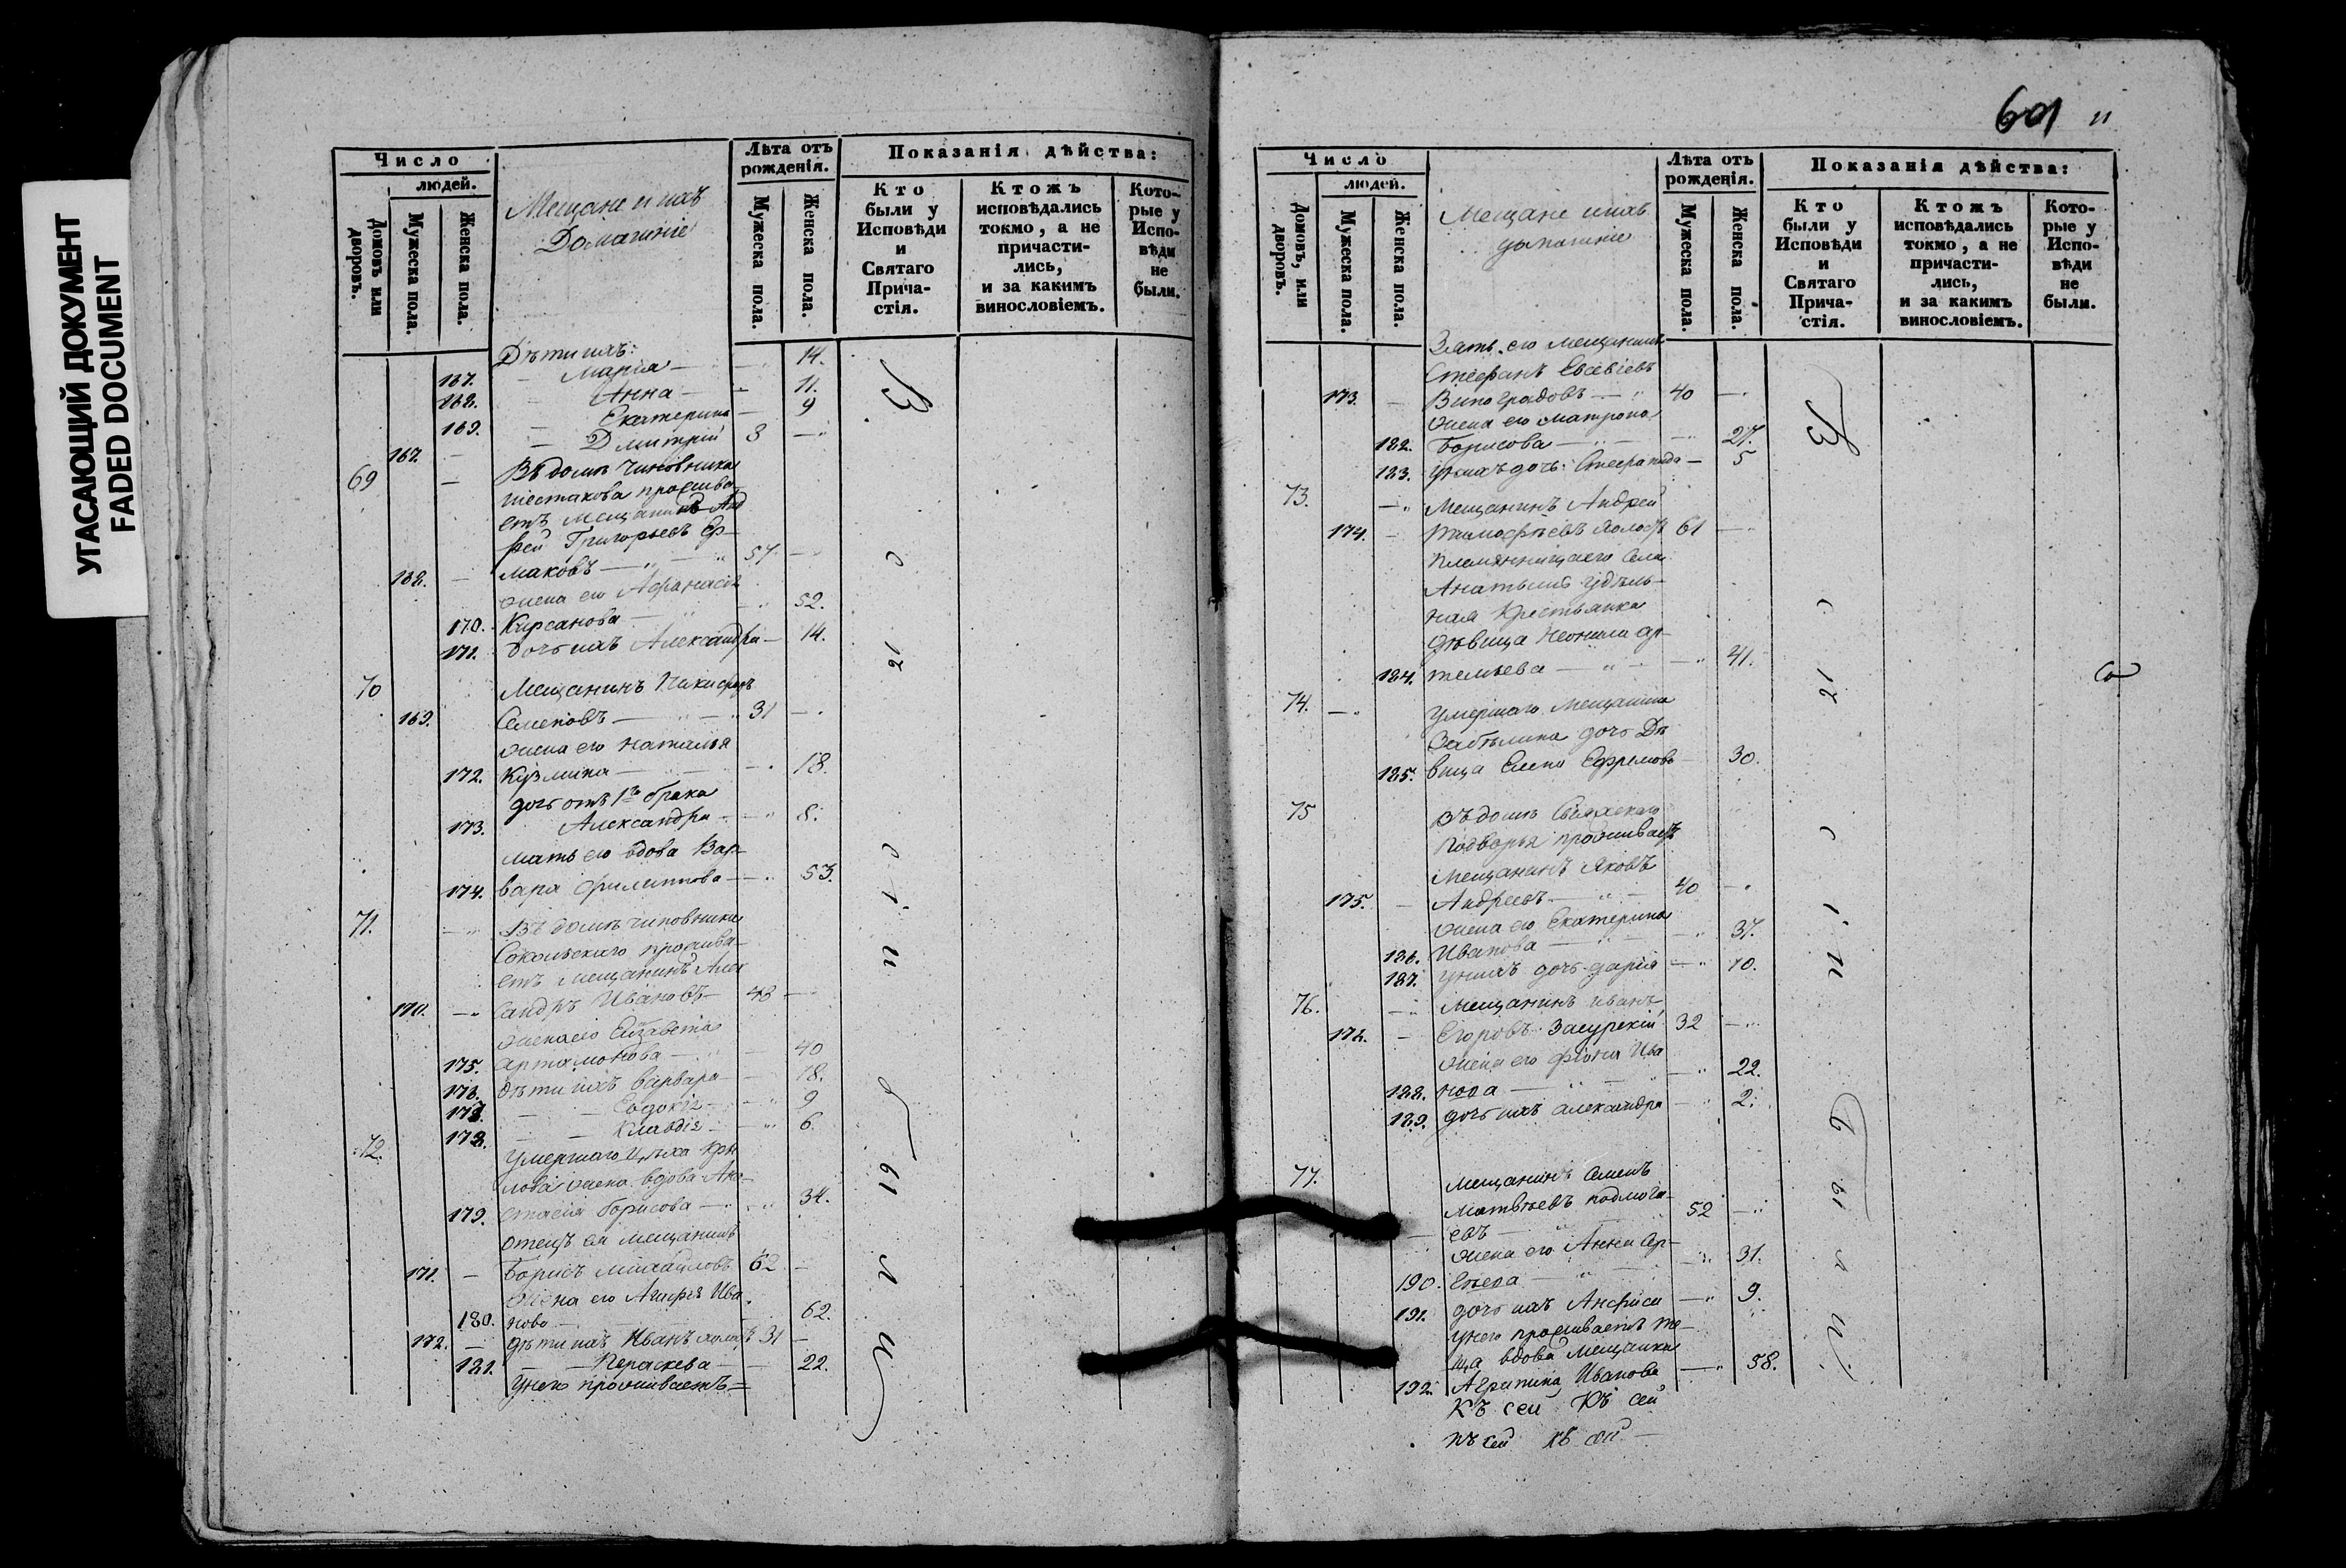 УГАСАЮЩИЙ ДОКУМЕНТ
FADED DOCUMENT
Число
людей.
Домовъ или дворовъ.
Мужеска пола.
Женска пола.
Мещане и ихъ
Домашніе
Лѣта отъ рожденія.
Мужеска пола.
Женска пола.
Показанія дѣйства:
Кто были у Исповѣди и Святаго Прича-стія.
Ктожъ исповѣдались токмо, а не причасти-лись, и за какимъ винословіемъ.
Кото-рые у Испо-вѣди не были.
Дѣти ихъ:
167. Марія — 14.
168. Анна — 11.
169. Екатерина — 9
167. Дмитрій 3
69 Въ домѣ Чиновника
Шестакова прожива-
етъ Мещанинъ Анд
рей Григорьевъ Ер-
168. маковъ — 57.
Жена его Афанасія
170. Кирсанова — 52.
171. Дочь ихъ Александра — 14.
70 Мещанинъ Никифоръ
169. Семеновъ — 31
Жена его Наталья
172. Кузмина — 18.
дочь отъ 1го брака
173. Александра — 8.
Мать его вдова Вар-
174. вара Филиппова — 53.
71. Въ домѣ чиновника
Сокольскаго прожива-
етъ Мещанинъ Алек
170. сандръ Ивановъ — 48
Жена его Елизавета
175. Артамонова — 40
176. Дѣти ихъ Варвара — 18.
177. Евдокія — 9
178. Клавдія — 6.
72. Умершаго Цѣха Кры
лова жена вдова Ана-
179. стасія Борисова — 34.
Отецъ ея мещанинъ
171. Борисъ Михайловъ 62
Жена его Агафья Ива
180. нова — 62.
172. Дѣти ихъ Иванъ холос 31
181. Параскева — 22.
У него проживаетъ =
Были
601 11
Число
людей.
Домовъ, или дворовъ.
Мужеска пола.
Женска пола.
Мещане и ихъ
домашніе
Лѣта отъ рожденія.
Мужеска пола.
Женска пола.
Показанія дѣйства:
Кто были у Исповѣди и Святаго Прича-стія.
Ктожъ исповѣдались токмо, а не причасти-лись, и за какимъ винословіемъ.
Кото-рые у Испо-вѣди не были.
Зять его Мещанинъ
Стефанъ Евсевіевъ
173. Виноградовъ — 40
Жена его Матрона
182. Борисова — 27.
183. У нихъ дочь: Стефанида — 5
73. Мещанинъ Андрей
174. Тимофѣевъ холос 61
Племянница его Села
удѣль-
ная Крестьянка
дѣвица Неонила Ар-
184. темьева — 41.
74. Умершаго Мещанина
Забѣлина дочь Дѣ
185. вица Елена Ефремова 30.
75 Въ домѣ Свіяжскаго
Подворья проживаетъ
Мещанинъ Яковъ
175. Андреевъ — 40
Жена его Екатерина
186. Иванова — 37.
187. У нихъ дочь Дарія — 10.
76. Мещанинъ Иванъ
176. Егоровъ Засурскій 32
Жена его Фіона Ива
188. нова — 22.
189. Дочь ихъ Александра — 2.
77. Мещанинъ Семенъ
Матвѣевъ Подмога-
евъ 52
Жена его Анна Ср-
190. 31.
191. Дочь ихъ Анфиса — 9.
У него проживаетъ те-
ща вдова Мещанка
192. Агрипина Иванова — 58.
Къ сей Къ сей
Къ сей Къ сей
Были